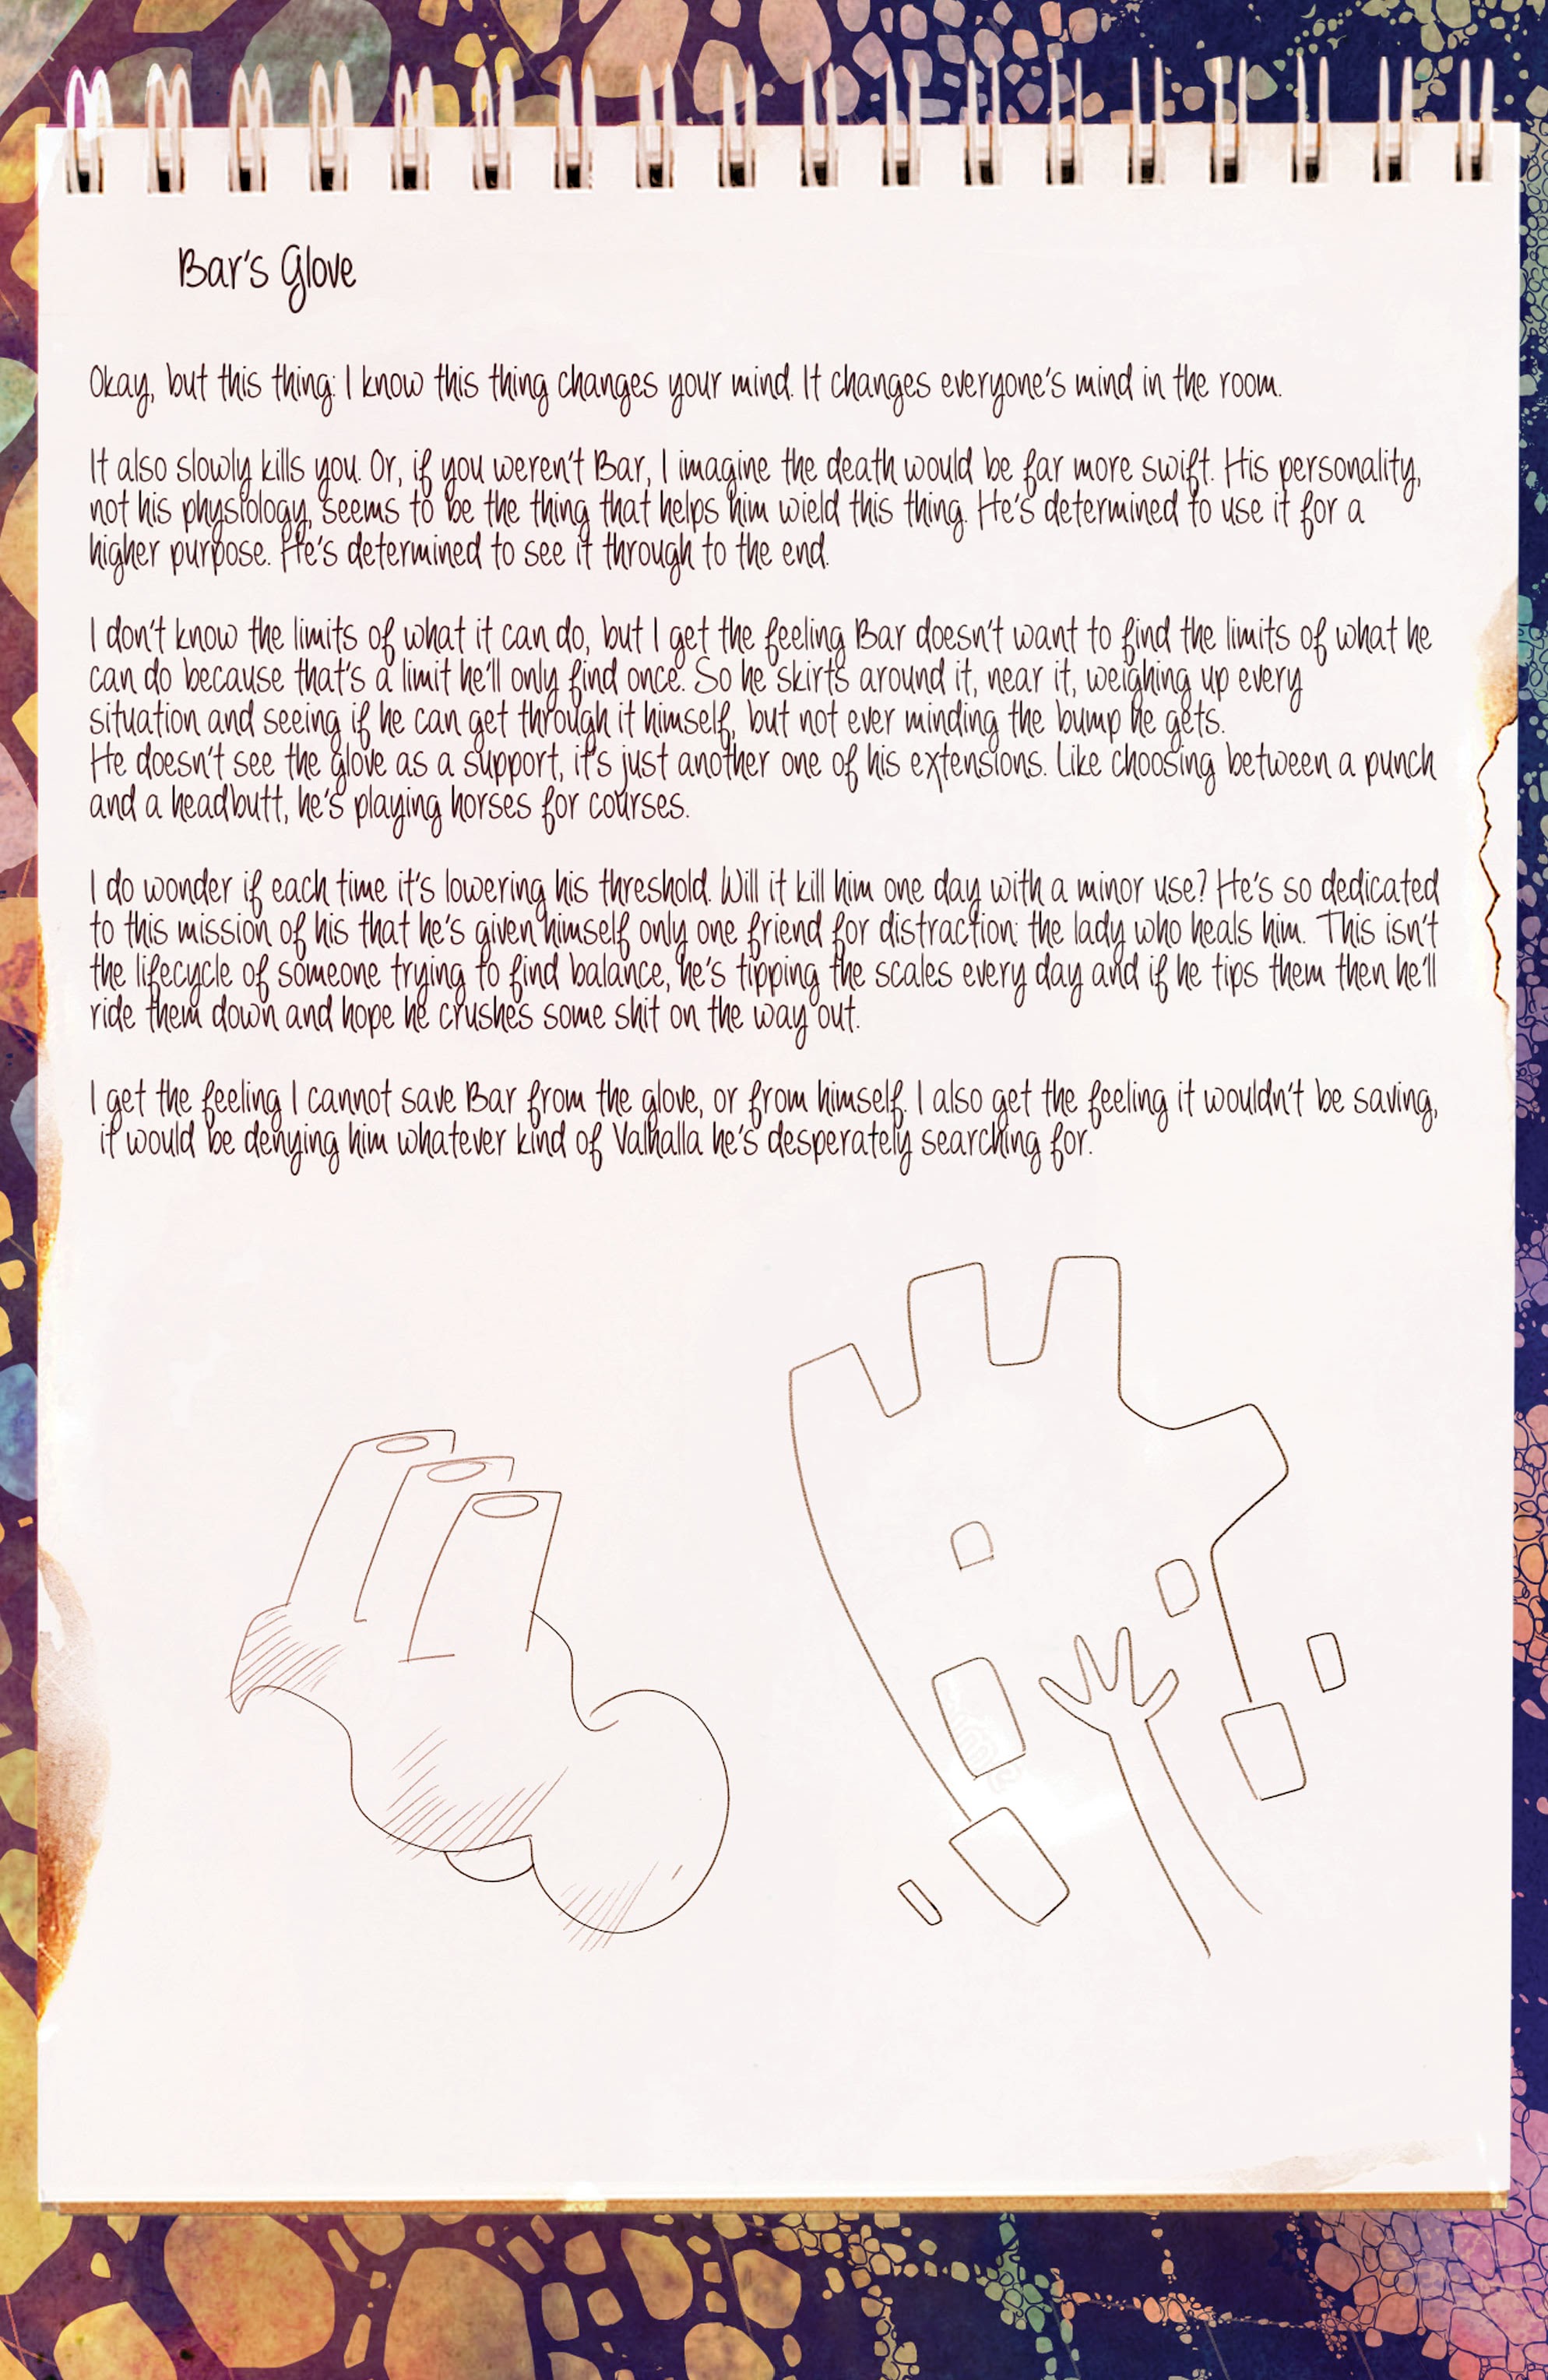 Bar's Glove
Okay, but this thing: I know this thing changes your mind. It changes everyone's mind in the room.
It also slowly kills you. Or, if you weren't Bar, I imagine the death would be far more swift. His personality,
not his physiology, seems to be the thing that helps him wield this thing. He's determined to use it for a
higher purpose. He's determined to see it through to the end.
I don't know the limits of what it can do, but I get the feeling Bar doesn't want to find the limits of what he
can do because that's a limit he'll only find once. So he skirts around it, near it, weighing up every
situation and seeing if he can get through it himself, but not ever minding the bump he gets.
He doesn't see the glove as a support, it's just another one of his extensions. Like choosing between a punch
and a headbutt, he's playing horses for courses.
I do wonder if each time it's lowering his threshold. Will it kill him one day with a minor use? He's so dedicated
to this mission of his that he's given himself only one friend for distraction: the lady who heals him. This isn't
the lifecycle of someone trying to find balance, he's tipping the scales every day and if he tips them then he'll
ride them down and hope he crushes some shit on the way out.
I get the feeling I cannot save Bar from the glove, or from himself. I also get the feeling it wouldn't be saving,
it would be denying him whatever kind of Valhalla he's desperately searching for.